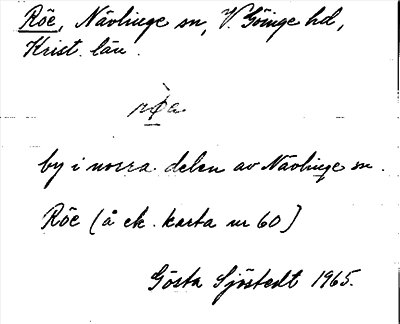 Röe, Nävlinge sn, V. Göinge hd,
Krist. län.
rø̀a
by i norra delen av Nävlinge sn.
Röe (å ek. karta nr 60)
Gösta Sjöstedt 1965.